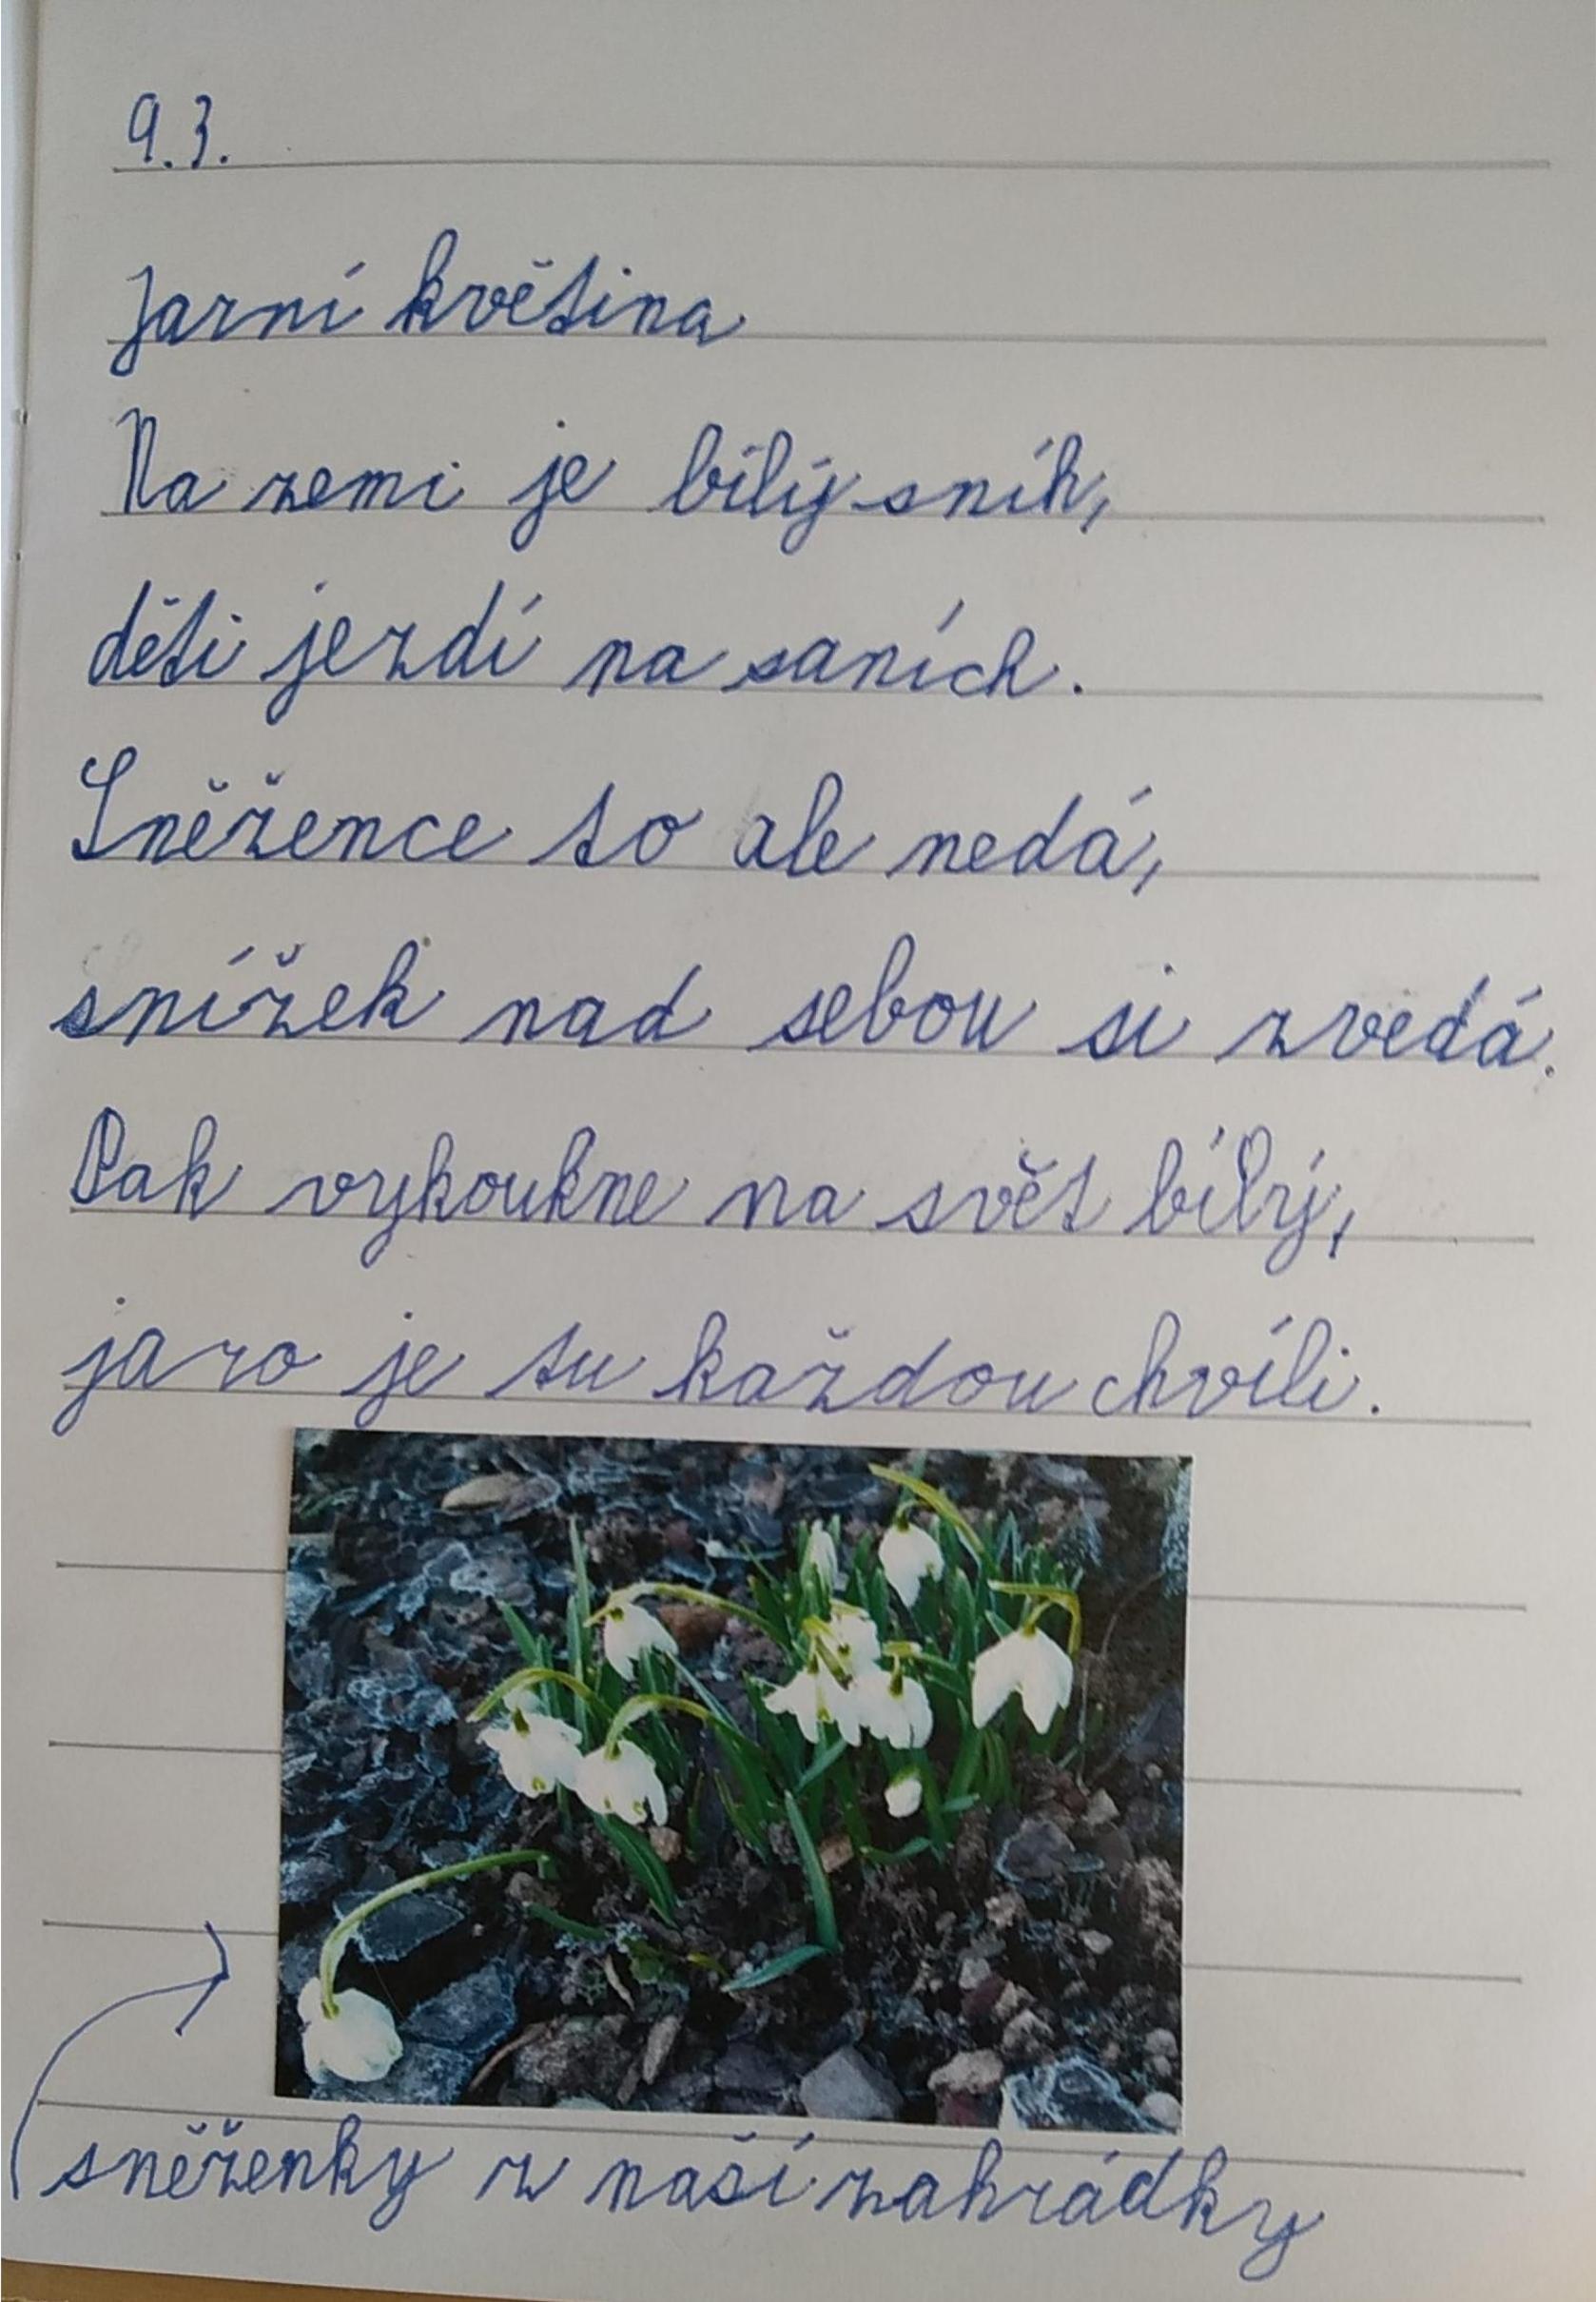 9.3.
Jarní květina
Na zemi je bílý sníh,
děti jezdí na saních.
Sněžence to ale nedá,
snížek nad sebou si zvedá.
Pak vykoukne na svět bílý,
jaro je tu každou chvíli.
sněženky z naší zahrádky